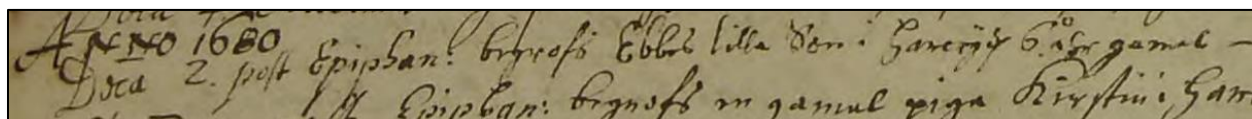 ANNO 1680
Doca 2. post Epiphan: begrofs Ebbes lilla Son i 6. åhr gamal –
Epiphan: begrofs en gamal piga Kirstin i Har